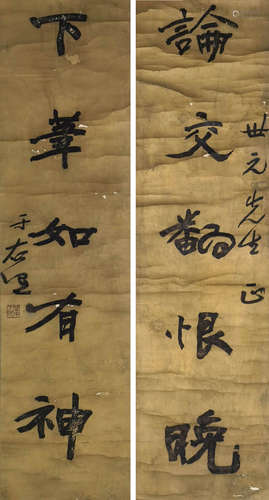 論交翻恨晚
世元先生正
下筆如有神
于右任